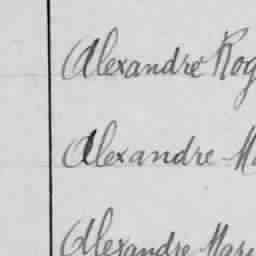 Alexandre Rog
Alexandre Ma
Alexandre Mari